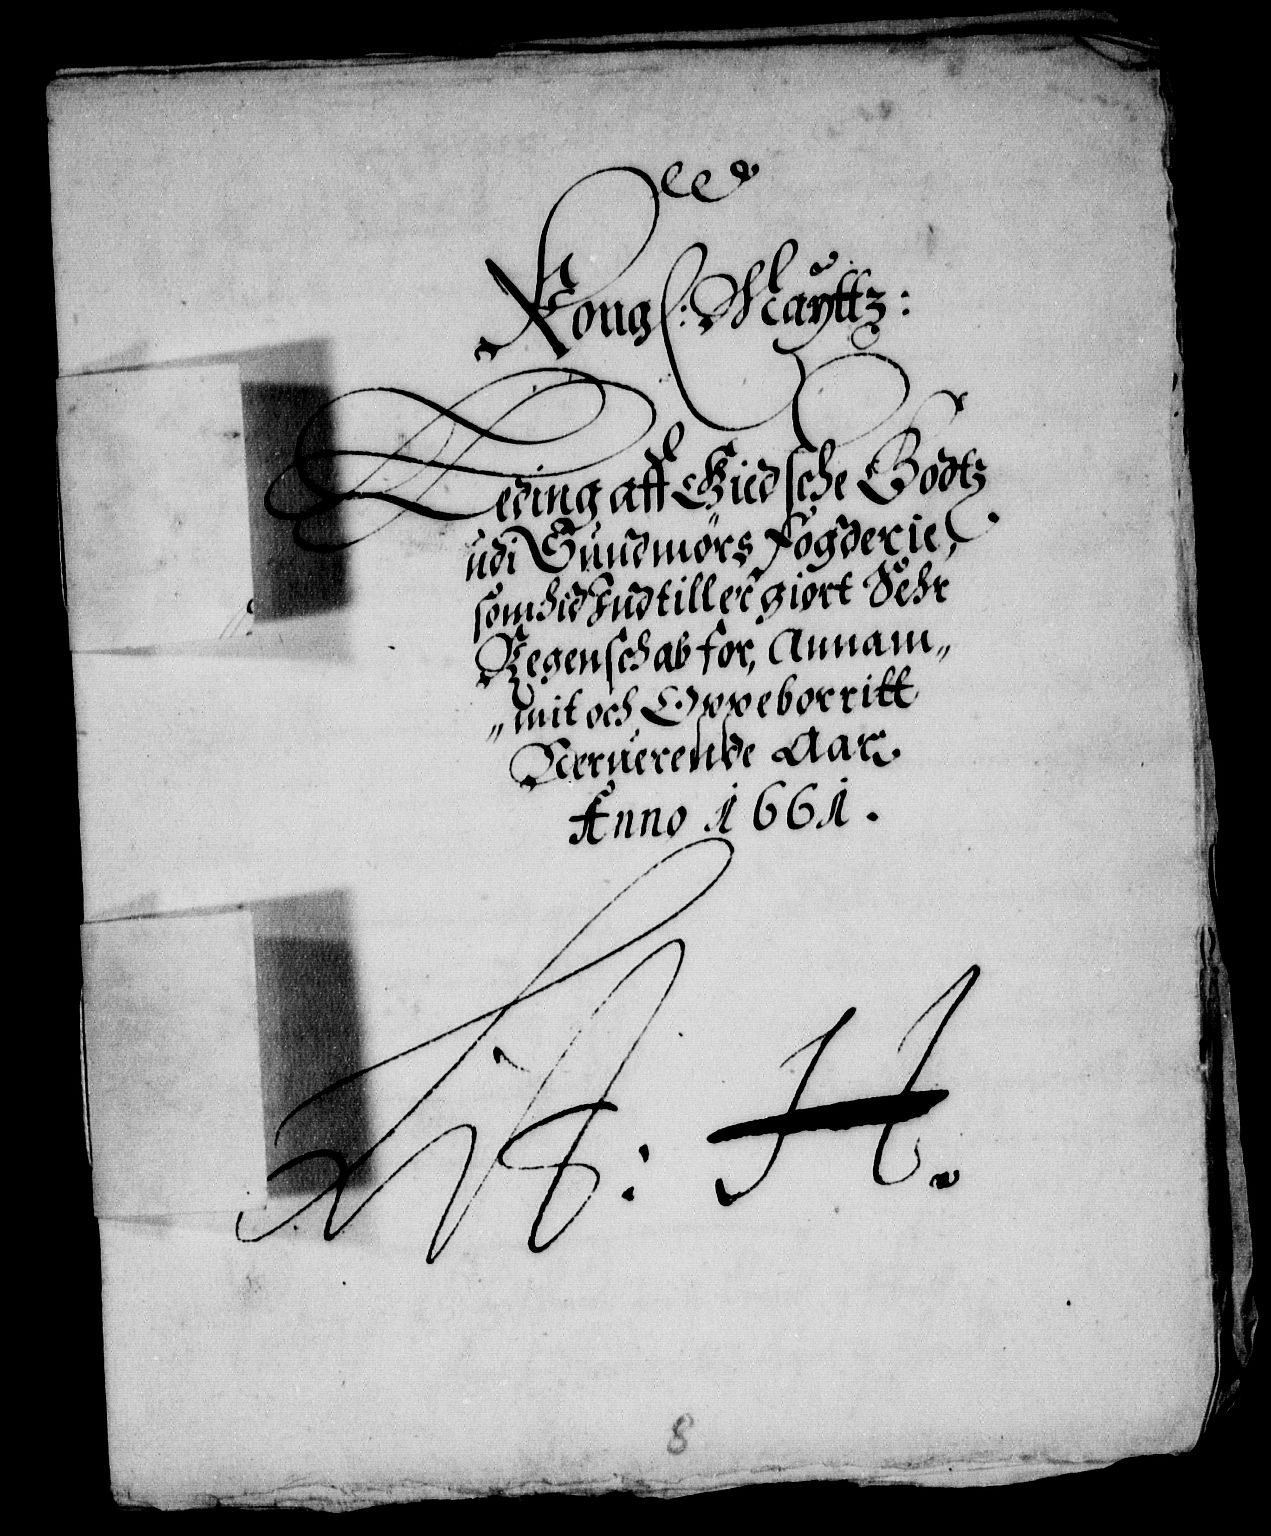 Kongl: Mayttz:
Leding aff Giedsche Godtz
udi Sundmörs Fogderie,
som hid Indtill er giort Sehr
Regenschab for, Annam„
„mit och Oppeborritt
Nerverende Aar,
Anno 1661.
Litt: H.
8